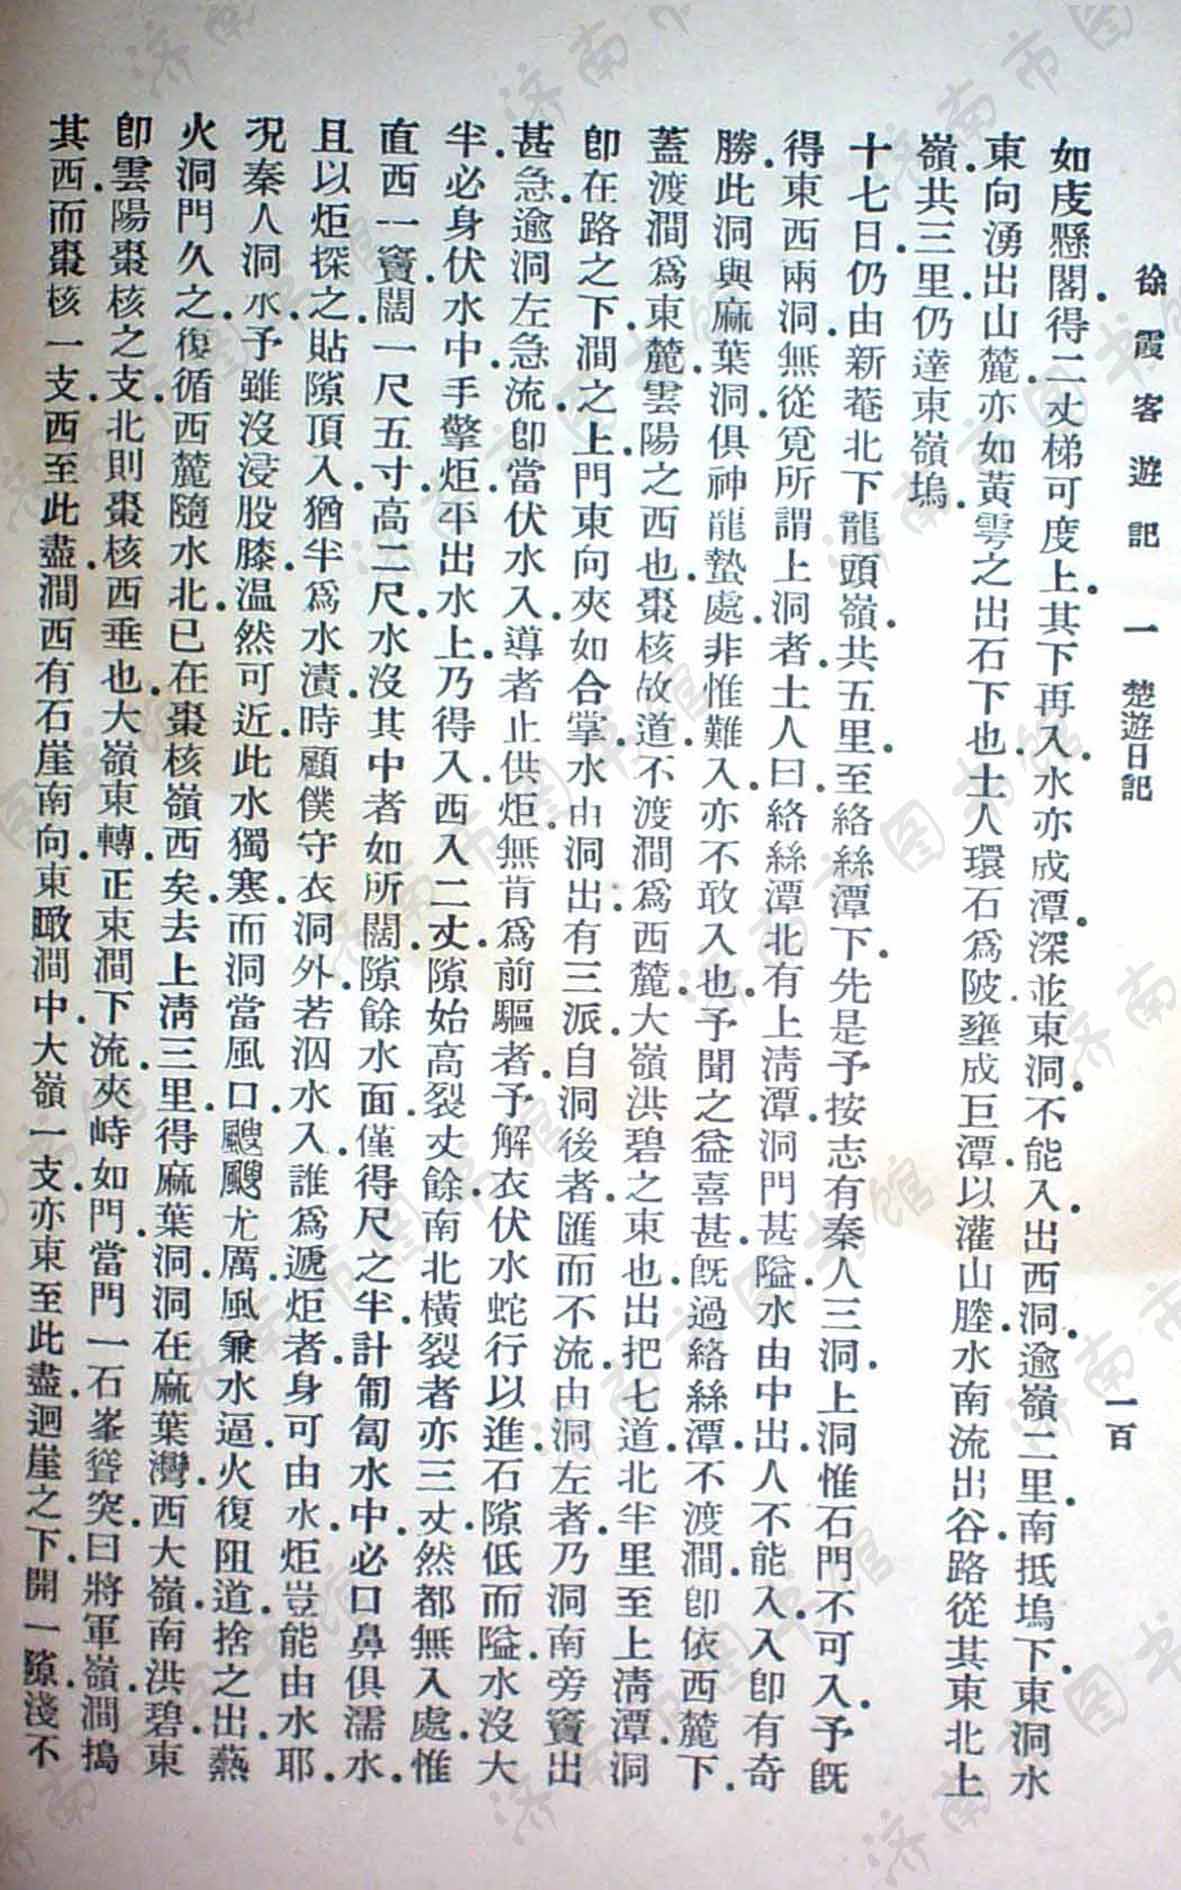 徐霞客遊記 一 楚遊日記 一百
如庋懸閣.得二丈梯可度上.其下再入.水亦成潭.深並東洞.不能入.出西洞.逾嶺二里.南抵塢下.東洞水
東向湧出山麓.亦如黃雩之出石下也.土人環石爲陂.壅成巨潭.以灌山塍.水南流出谷.路從其東北上
嶺.共三里.仍達東嶺塢.
十七日.仍由新菴北下龍頭嶺.共五里.至絡絲潭下.先是予按志有秦人三洞.上洞惟石門不可入.予旣
得東西兩洞.無從覓所謂上洞者.土人曰.絡絲潭北有上淸潭.洞門甚隘.水由中出.人不能入.入卽有奇
勝.此洞與麻葉洞.俱神龍蟄處.非惟難入.亦不敢入也.予聞之益喜甚.旣過絡絲潭.不渡澗.卽依西麓下.
蓋渡澗爲東麓.雲陽之西也.棗核故道.不渡澗爲西麓.大嶺洪碧之東也.出把七道.北半里.至上淸潭.洞
卽在路之下.澗之上.門東向.夾如合掌.水由洞出.有三派.自洞後者.匯而不流.由洞左者.乃洞南旁竇出
甚急.逾洞左急流.卽當伏水入.導者止供炬.無肯爲前驅者.予解衣伏水.蛇行以進.石隙低而隘.水沒大
半.必身伏水中.手擎炬.平出水上.乃得入.西入二丈.隙始高裂丈餘.南北橫裂者亦三丈.然都無入處.惟
直西一竇.闊一尺五寸.高二尺.水沒其中者如所闊.隙餘水面.僅得尺之半.計匍匐水中.必口鼻俱濡水.
且以炬探之.貼隙頂入.猶半爲水漬.時顧僕守衣洞外.若泅水入.誰爲遞炬者.身可由水.炬豈能由水耶.
况秦人洞水.予雖沒浸股膝.溫然可近.此水獨寒.而洞當風口.颼颼尤厲.風兼水逼.火復阻道.捨之出.爇
火洞門久之.復循西麓隨水北.已在棗核嶺西矣.去上淸三里.得麻葉洞.洞在麻葉灣.西大嶺.南洪碧.東
卽雲陽棗核之支.北則棗核西垂也.大嶺東轉.正束澗下流.夾峙如門.當門一石峯聳突.曰將軍嶺.澗搗
其西而棗核一支.西至此盡.澗西有石崖南向.東瞰澗中.大嶺一支.亦東至此盡.迴崖之下.開一隙.淺不